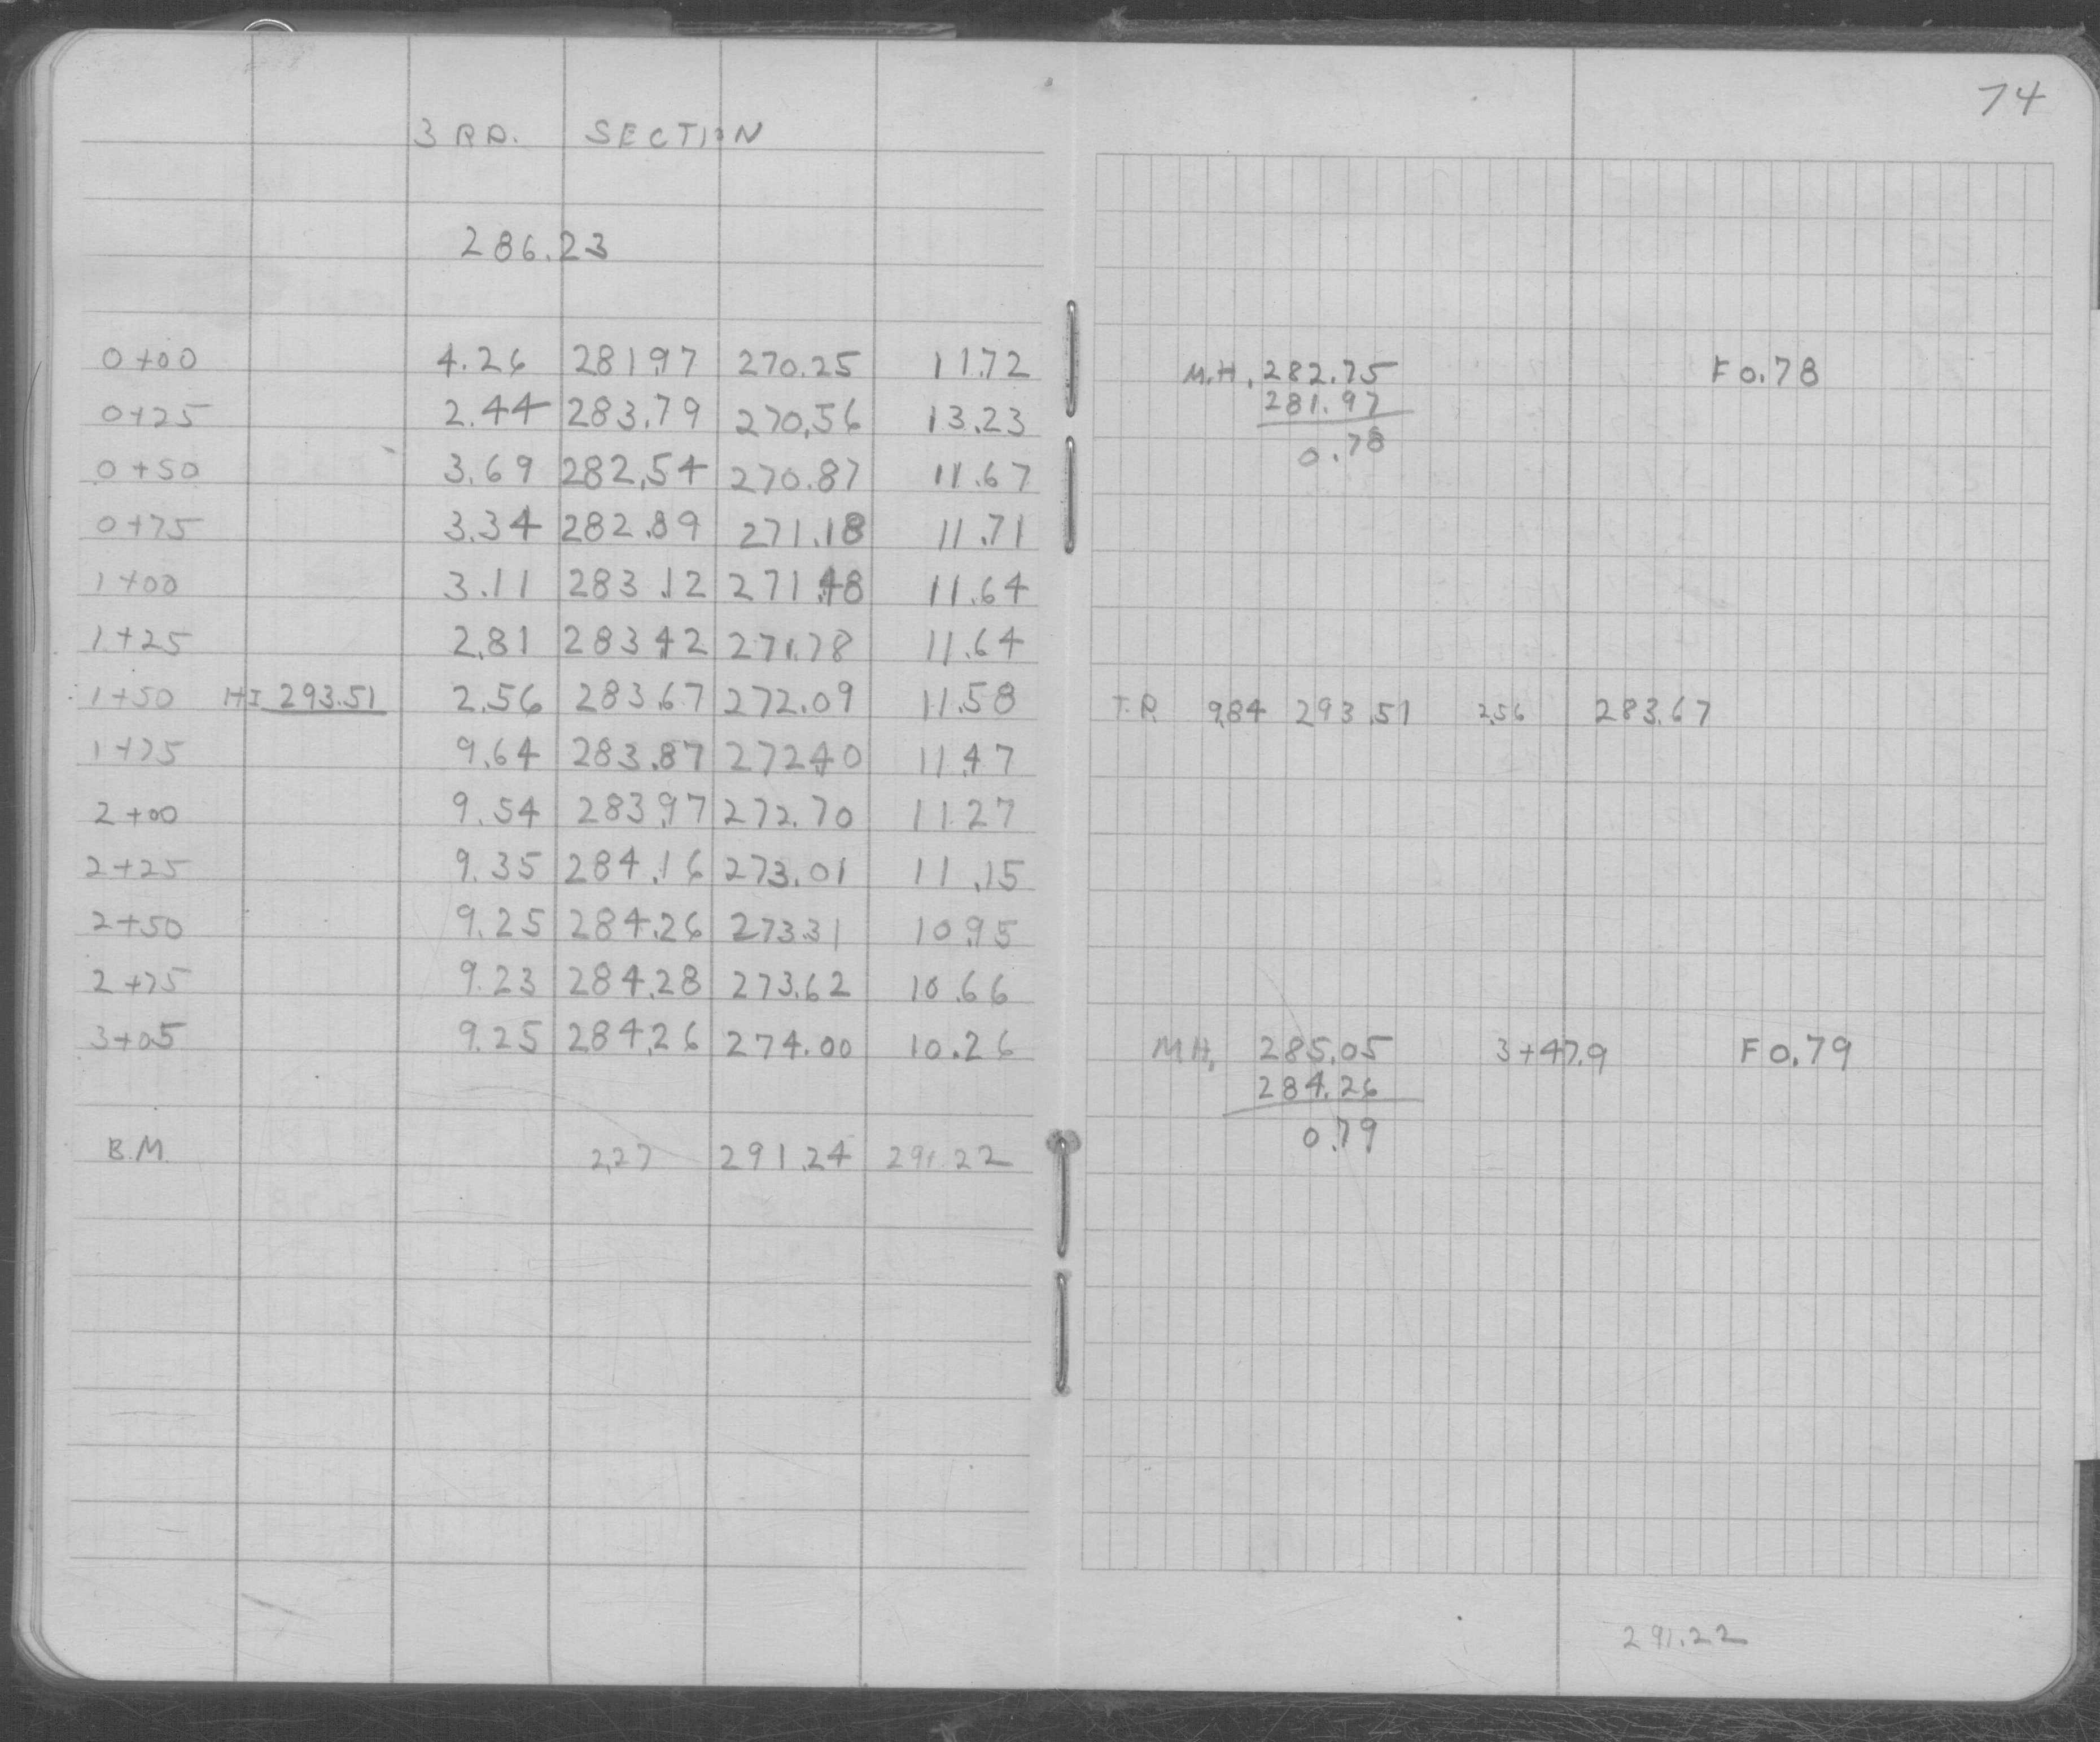 74
3 RD. SECTION
286.23
0+00 4.26 281.97 270.25 11.72 M.H. 282.75 F 0.78
281.97
0+25 2.44 283.79 270.56 13.23
0.78
0+50 3.69 282.54 270.87 11.67
0+75 3.34 282.89 271.18 11.71
1+00 3.11 283.12 271.48 11.64
1+25 2.81 283.42 271.78 11.64
1+50 HI 293.51 2.56 283.67 272.09 11.58 T.P. 9.84 293.51 2.56 283.67
1+75 9.64 283.87 272.40 11.47
2+00 9.54 283.97 272.70 11.27
2+25 9.35 284.16 273.01 11.15
2+50 9.25 284.26 273.31 10.95
2+75 9.23 284.28 273.62 10.66
3+05 9.25 284.26 274.00 10.26 M.H. 285.05 3+47.9 F 0.79
284.26
0.79
B.M. 2.27 291.24 291.22
291.22